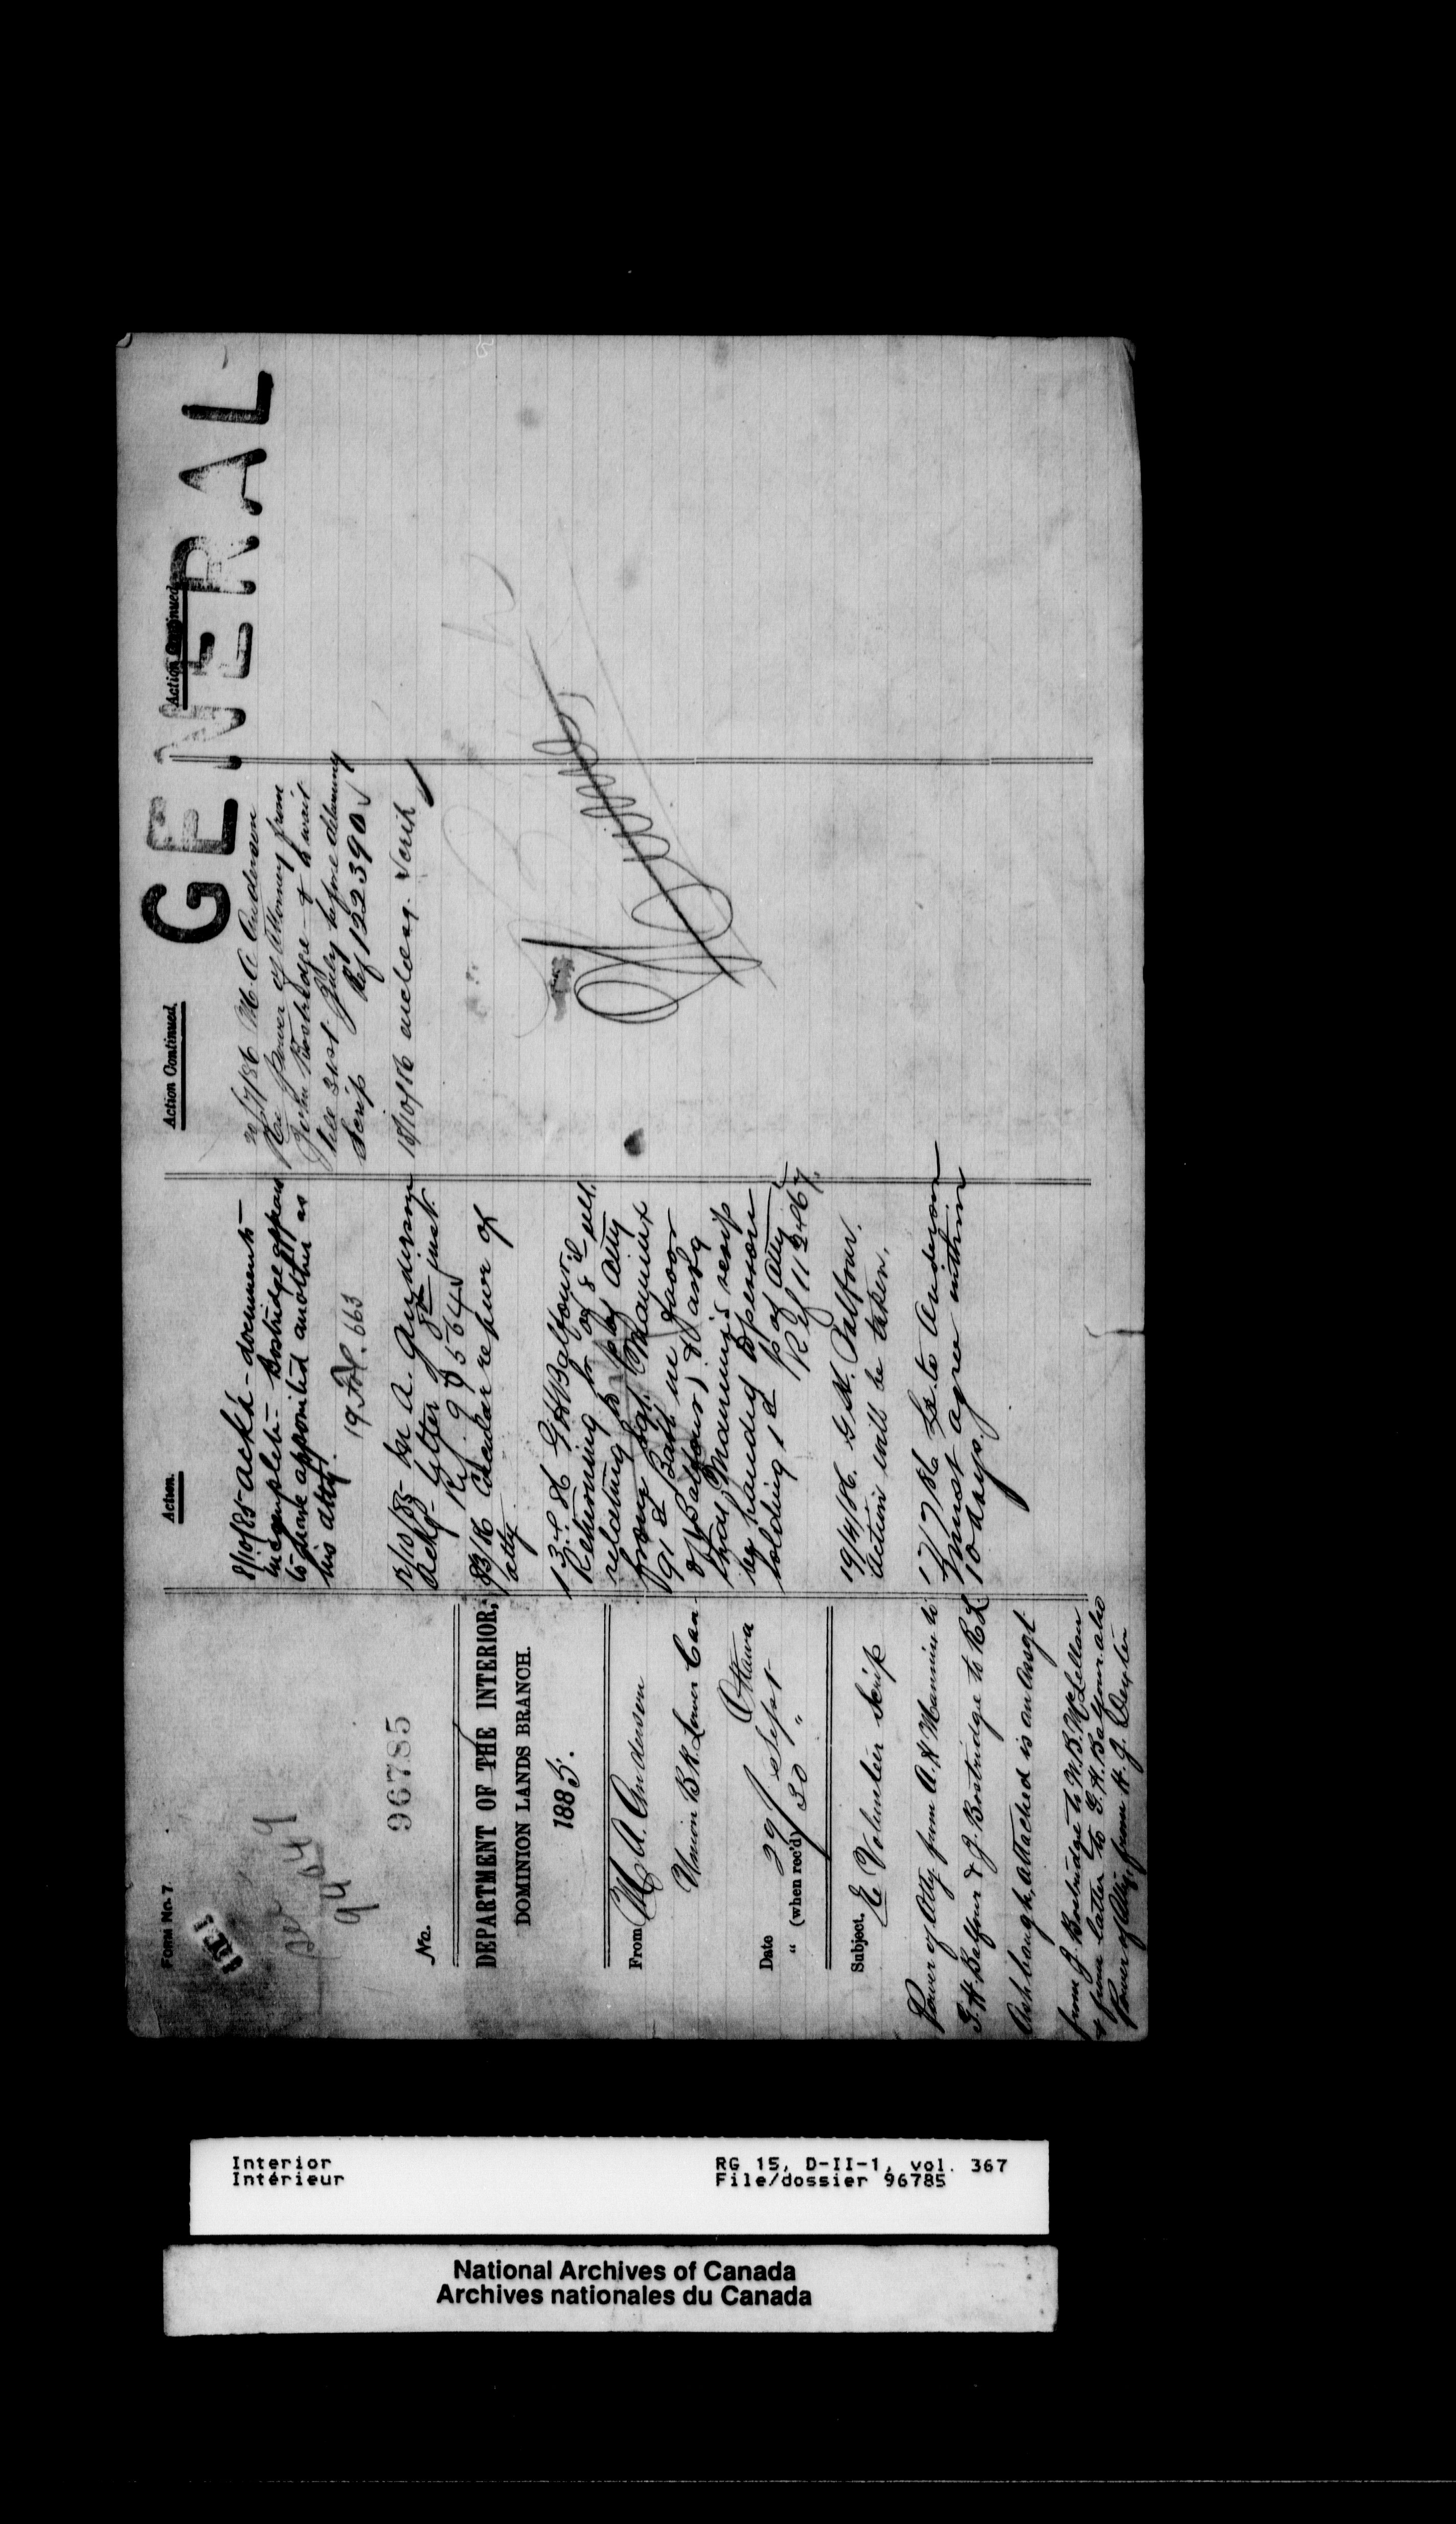 FORM No. 7
94049
No. 96785
DEPARTMENT OF THE INTERIOR,
DOMINION LANDS BRANCH.
1885.
From M. A. Anderson
Union Bk Lower Can-
Ottawa
Date 29 Sept
" (when rec'd) 30 "
Subject. Re Volunteer Scrip
Power of Atty from A. H. Manning to
G. H. Balfour & J. Bostridge to R L
Ashbaugh, attached is an Assgt
from J. Bostridge to W. B. McLellan
& from latter to G. H. Balfour also
Power of Atty, from H. J. Dexter
Action.
8/10/85 - ack'd - documents
incomplete - Bostridge appears
to have appointed another as
his atty.
19 Fol. 663
12/10/85 - M. A. Anderson
ackg letter 8th inst.
Rf 98564
Circular re power of
atty
13.4.86 G H Balfour
Returning lr of 8th ult.
relating to p of atty
from Manning
91st Batt in favor
of Balfour, & asks
that Manning's scrip
be handed to person
holding 1st p of atty
Rf 112467.
19/4/86. G. H. Balfour.
Action will be taken.
17/7/86 Lr. to Anderson
must agree within
10 days.
Action Continued.
20/7/86 M. A. Anderson
Re Power of Attorney from
John Bostridge - & to wait
till 31st July before delivering
Scrip Rf 122390
18/10/86 encloses. Scrip
Action Continued.
GENERAL
Interior
Intérieur
RG 15, D-II-1, vol. 367
File/dossier 96785
National Archives of Canada
Archives nationales du Canada